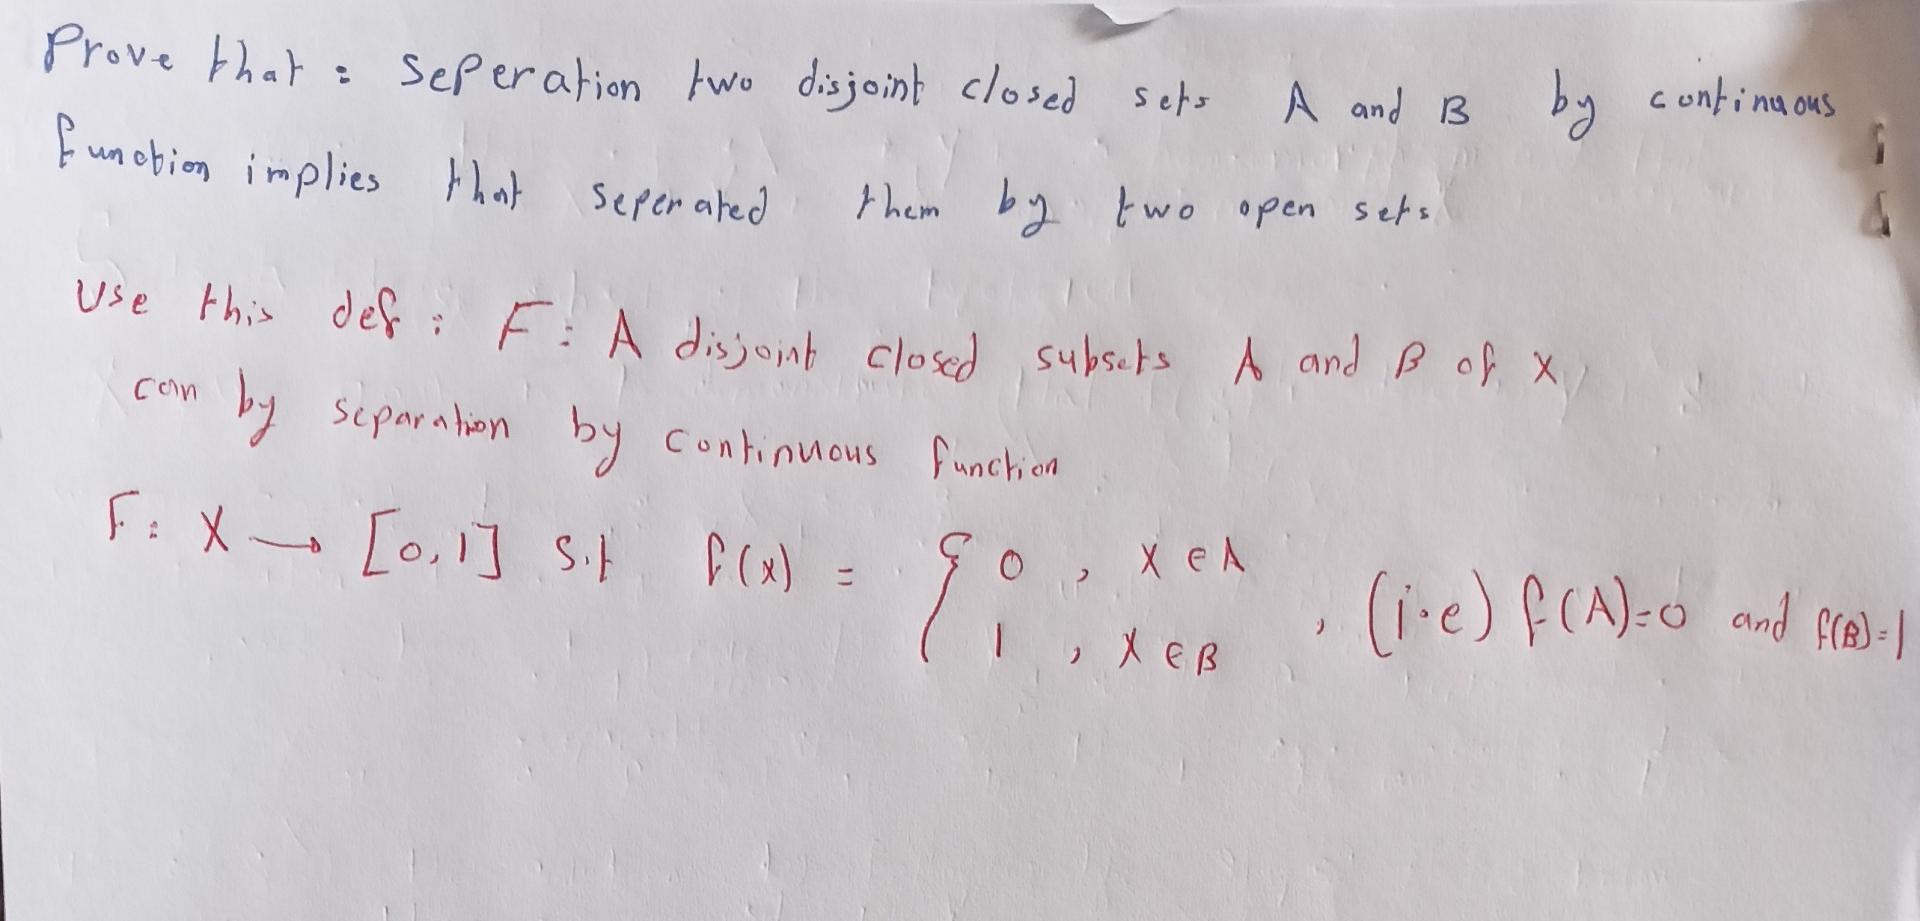 Prove that : Seperation two disjoint closed sets A and B by continuous
function implies that seperated them by two open sets
Use this def : F : A disjoint closed subsets A and B of X
can by separation by continuous function
F : X → [0,1] s.t f(x) = { 0 , x ∈ A
1 , x ∈ B , (i.e) f(A)=0 and f(B)=1